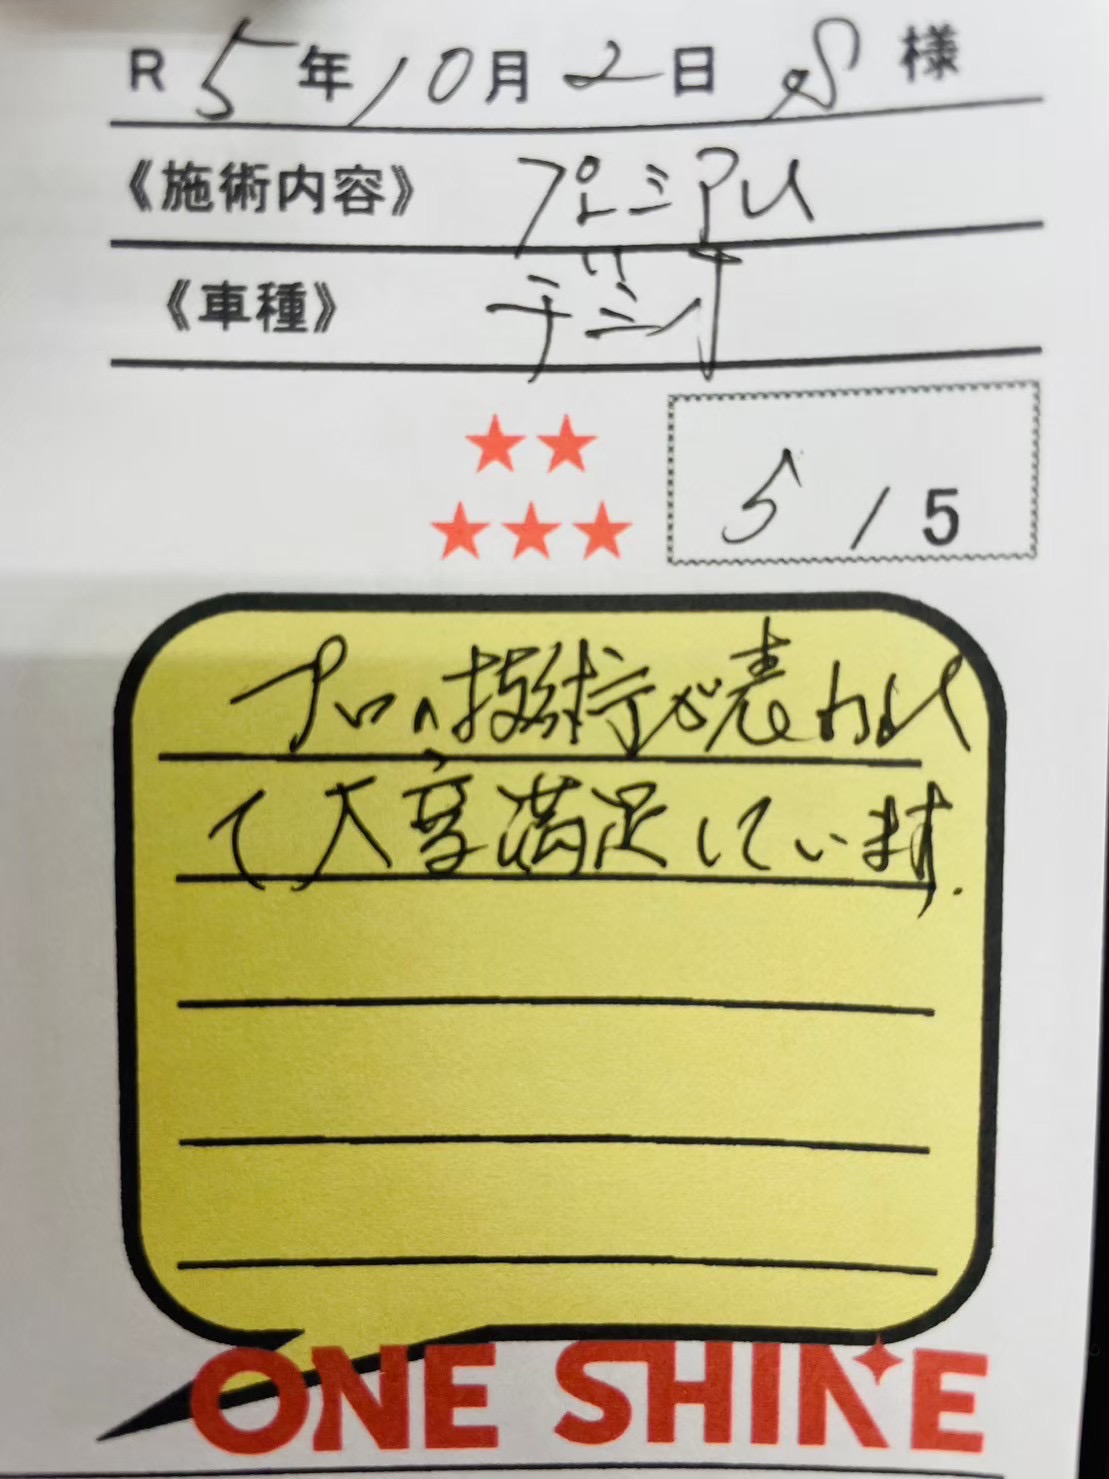 R 5年10月2日 S 様
《施術内容》 プレミアム
《車種》
5 / 5
プロの技術が表れれ
て大変満足しています.
ONE SHINE